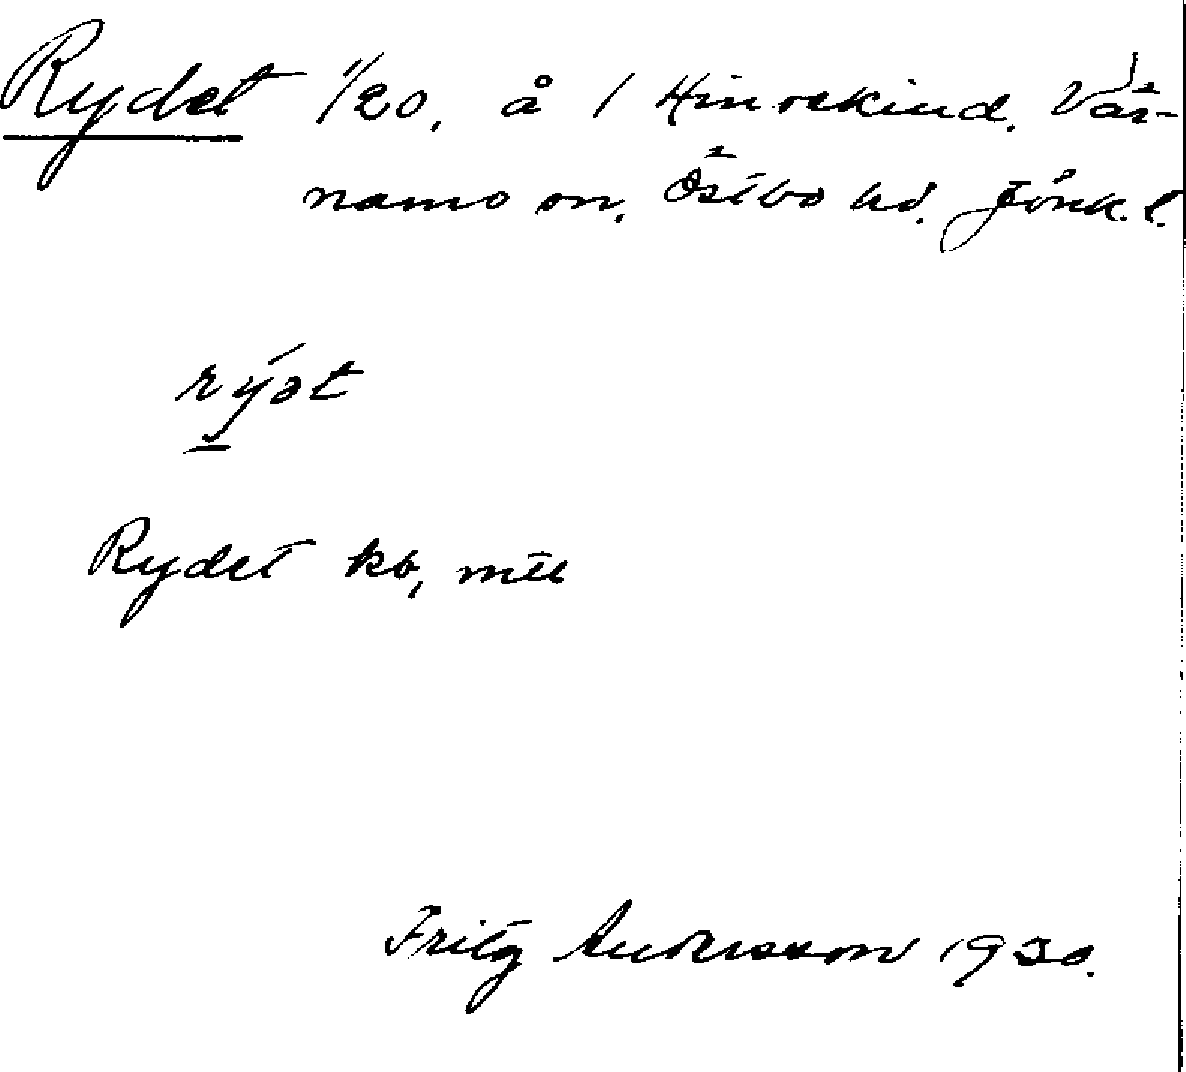 Rydet 1/20, å 1 Hinsekind, Vär-
namo sn, Östbo hd. Jönk. l.
rýət
Rydet kb, mtl
Fritz Andersson 1930.